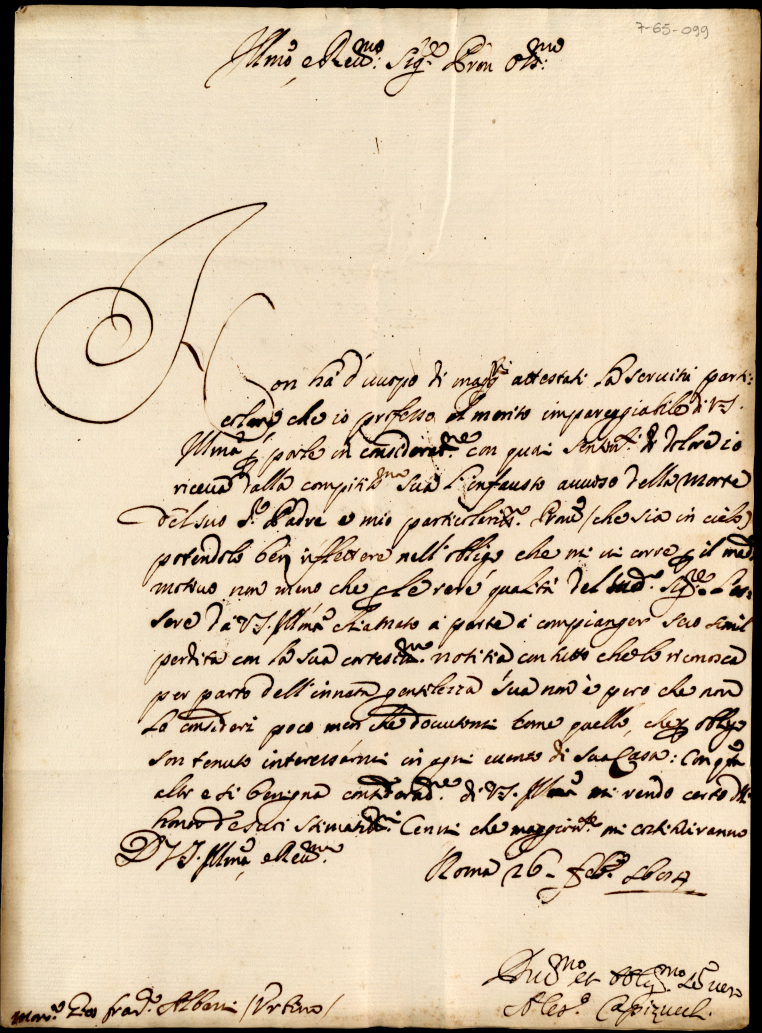 7-65-099
Ill.mo e Rev.mo Sig.re Pron Oss.mo
Non hà d'uuopo di magg.ri attestati la seruitù parti=
colare che io professo al merito impareggiabile di V.S.
Ill.ma p porle in considerat.ne con quai sentim.ti di dolore io
riceua dalla compitiss.ma sua l'infausto auuiso della Morte
del suo S.r Padre e mio particolariss.mo Prone (che sia in cielo)
potendolo ben riflettere nell'obligo che mi ui corre p il med.
motiuo non meno che p le rare qualità del sud.o Sig.re L'es=
sere da V.S. Ill.ma chiamato a parte à compianger una simil
perdita con la sua cortesiss.ma notitia con tutto che la riconosca
per parto dell'innata gentilezza sua non è però che non
la consideri poco men che douutami come quello, che p obligo
son tenuto interessarmi in ogni euento di sua Casa: Con q.ta
alta e sì benigna considerat.ne di V.S. Ill.ma mi rendo certo
honor de suoi stimatiss.mi Cenni che maggiorm.te mi costituiranno
D V.S. Ill.ma e Rev.ma
Roma 26 Feb.ro
Diu.mo et Obblig.mo Serure
Aless.o Capizucch.
Mons.r Albani (Urbino)